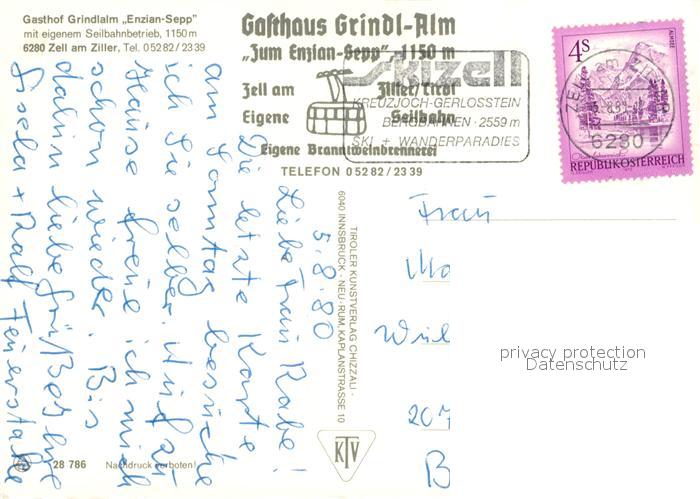 Gasthof Grindlalm „Enzian-Sepp"
mit eigenem Seilbahnbetrieb, 1150 m
6280 Zell am Ziller, Tel. 05282/2339
Gasthaus Grindl-Alm
„Zum Enzian-Sepp" - 1150 m
Zell am Ziller/Tirol
Eigene Seilbahn
Eigene Branntweinbrennerei
TELEFON 05282/2339
skizell
KREUZJOCH-GERLOSSTEIN
BERGBAHNEN · 2559 m
SKI + WANDERPARADIES
4S
ALMSEE
REPUBLIK ÖSTERREICH
6280
5.8.80
Liebe Frau Rabe!
Die letzte Karte
am Sonntag besuche
ich Sie selber. Und zu
Hause freue ich mich
schon wieder. Bis
dahin liebe Grüße Ihre
+ Ralf
TIROLER KUNSTVERLAG CHIZZALI ·
6040 INNSBRUCK - NEU - RUM, KAPLANSTRASSE 10
KTV
Frau
Wil
207
B
privacy protection
Datenschutz
28 786 Nachdruck verboten!